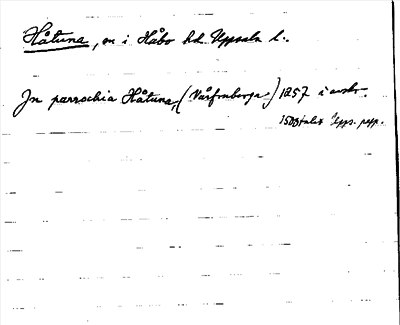 Håtuna, sn i Håbo hd Uppsala l.
In parrochia Håtuna, ( ) 1257 i avskr.
1500-talet Upps. pgp.